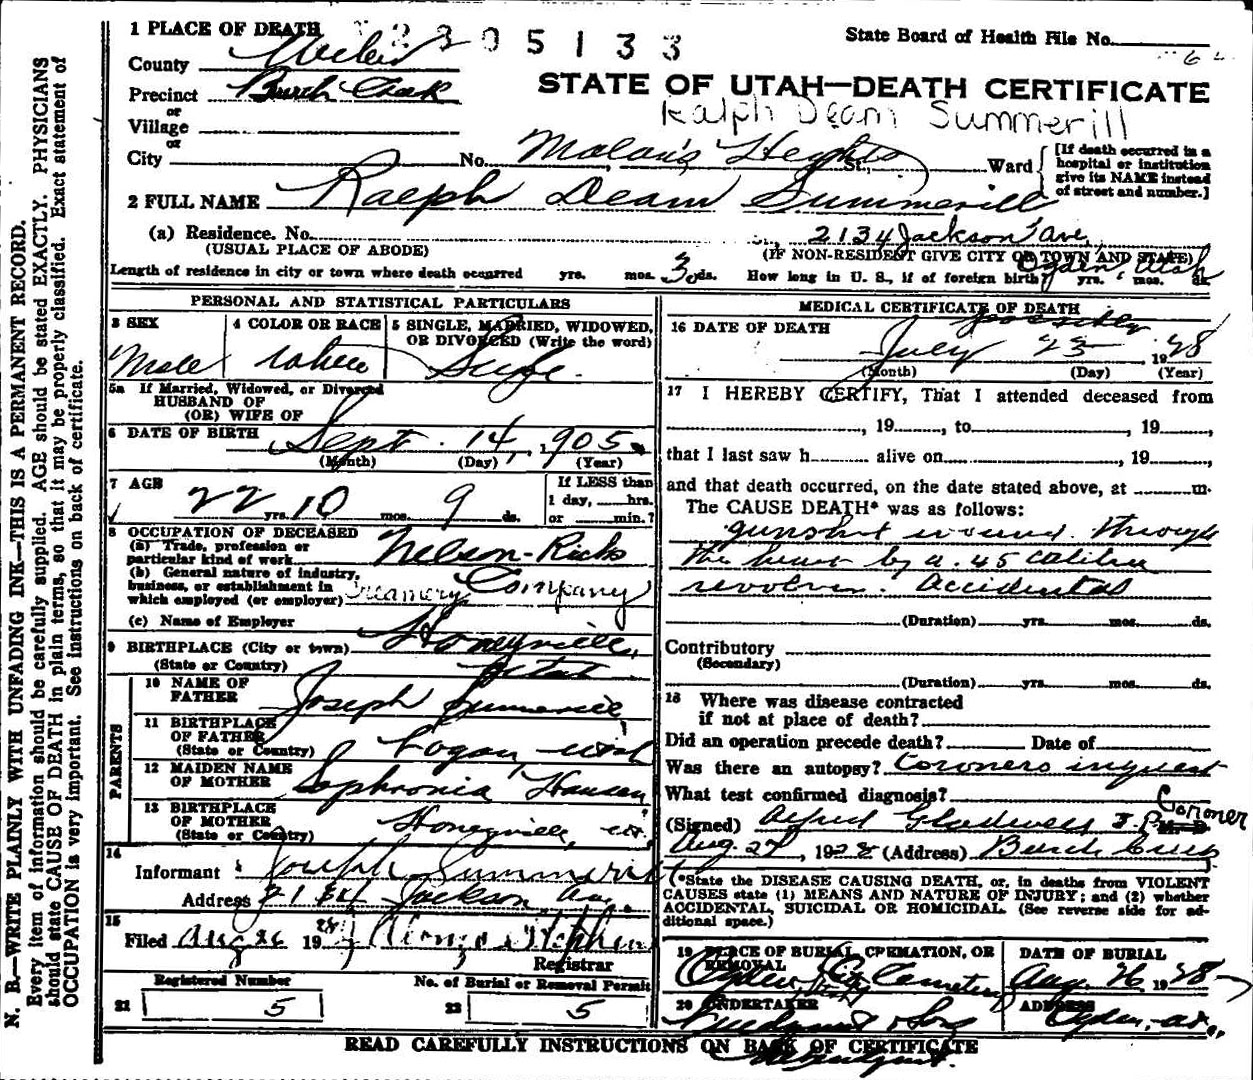 1 PLACE OF DEATH 2305133
State Board of Health File No.
County Weber
STATE OF UTAH—DEATH CERTIFICATE
Precinct Burch Creek
Ralph Deam Summerill
or
Village
or
City No. Malan's Heights St., Ward
[If death occurred in a hospital or institution give its NAME instead of street and number.]
2 FULL NAME Ralph Deam Summerill
(a) Residence. No. 2134 Jackson Ave,
(USUAL PLACE OF ABODE) (IF NON-RESIDENT GIVE CITY OR TOWN AND STATE)
Ogden, Utah
Length of residence in city or town where death occurred yrs. mos. 3 ds. How long in U. S., if of foreign birth? yrs. mos. ds.
PERSONAL AND STATISTICAL PARTICULARS
3 SEX 4 COLOR OR RACE 5 SINGLE, MARRIED, WIDOWED,
OR DIVORCED (Write the word)
Male white Single.
5a If Married, Widowed, or Divorced
HUSBAND OF
(OR) WIFE OF
6 DATE OF BIRTH Sept. 14, 1905
(Month) (Day) (Year)
7 AGE 22 yrs. 10 mos. 9 ds.
If LESS than
1 day, hrs.
or min.?
8 OCCUPATION OF DECEASED
(a) Trade, profession or
particular kind of work Nelson-Ricks
(b) General nature of industry,
business, or establishment in
which employed (or employer) Creamery Company
(c) Name of Employer
9 BIRTHPLACE (City or town) Honeyville,
(State or Country) Utah
PARENTS
10 NAME OF
FATHER Joseph Summerill
11 BIRTHPLACE
OF FATHER
(State or Country) Logan, Utah
12 MAIDEN NAME
OF MOTHER Sophronia Hansen
13 BIRTHPLACE
OF MOTHER
(State or Country) Honeyville, Ut.
14
Informant Joseph Summerill
Address 2134 Jackson Ave.
15
Filed Aug 26 1928 Alonzo Stephens
Registrar
Registered Number No. of Burial or Removal Permit
21 5 22 5
MEDICAL CERTIFICATE OF DEATH
16 DATE OF DEATH possibly
July 23 1928
(Month) (Day) (Year)
17 I HEREBY CERTIFY, That I attended deceased from
, 19 , to , 19 ,
that I last saw h alive on , 19 ,
and that death occurred, on the date stated above, at m.
The CAUSE DEATH* was as follows:
gunshot wound through
the heart by a .45 calibre
revolver. Accidental
(Duration) yrs. mos. ds.
Contributory
(Secondary)
(Duration) yrs. mos. ds.
18 Where was disease contracted
if not at place of death?
Did an operation precede death? Date of
Was there an autopsy? Coroners inquest
What test confirmed diagnosis?
(Signed) Alfred Gladwell J. P. M. D. Coroner
Aug. 27, 1928 (Address) Burch Creek
(*State the DISEASE CAUSING DEATH, or, in deaths from VIOLENT
CAUSES state (1) MEANS AND NATURE OF INJURY; and (2) whether
ACCIDENTAL, SUICIDAL OR HOMICIDAL. (See reverse side for ad-
ditional space.)
19 PLACE OF BURIAL, CREMATION, OR
REMOVAL
Ogden City Cemetery
DATE OF BURIAL
Aug. 26 1928
20 UNDERTAKER
& Son
ADDRESS
Ogden, Ut.
READ CAREFULLY INSTRUCTIONS ON BACK OF CERTIFICATE
N. B.—WRITE PLAINLY WITH UNFADING INK—THIS IS A PERMANENT RECORD.
Every item of information should be carefully supplied. AGE should be stated EXACTLY. PHYSICIANS
should state CAUSE OF DEATH in plain terms, so that it may be properly classified. Exact statement of
OCCUPATION is very important. See instructions on back of certificate.